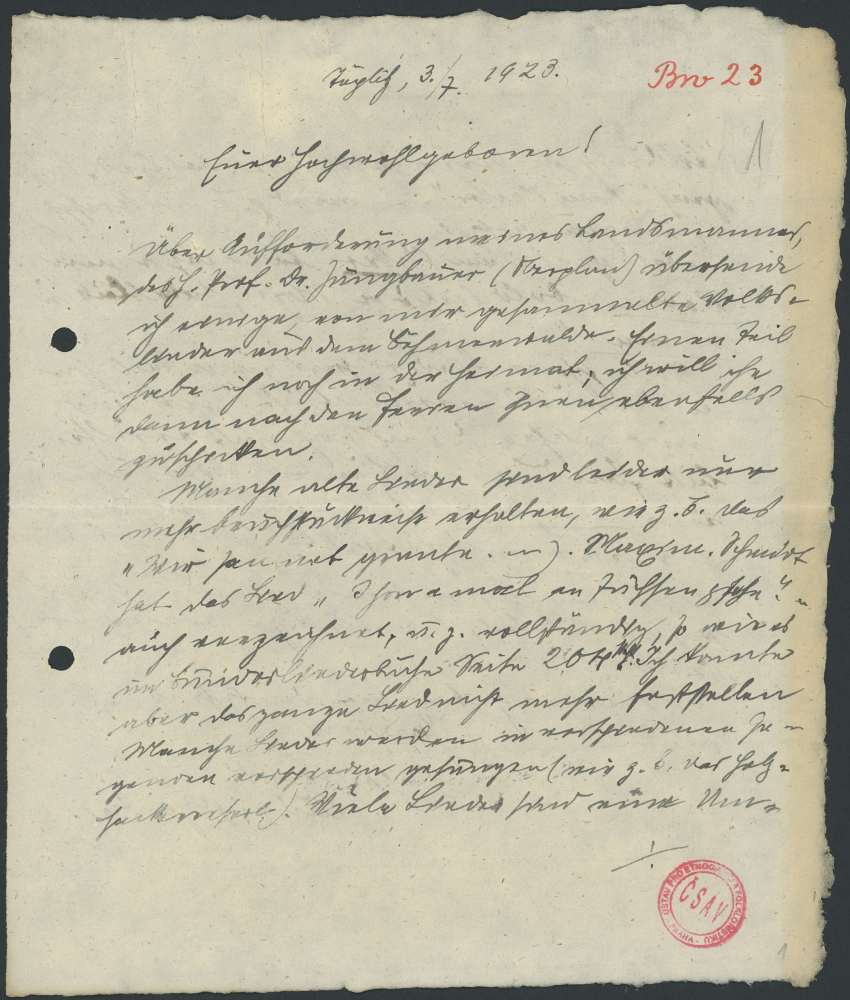 Täplitz, 3./7. 1923.
Brw 23
1
Euer Hochwohlgeboren!
Über Aufforderung meines Landsmannes,
des H. Prof. Dr. Jungbauer (Oberplan) übersende
ich einige, von mir gesammelte Volks-
lieder aus dem Böhmerwalde. Einen Teil
habe ich noch in der Heimat; ich will ihn
dann nach den Ferien Ihnen ebenfalls
zuschicken.
Manche alte Lieder sind leider nur
mehr bruchstückweise erhalten, wie z. B. das
"Wir san net
hat das Lied „ I how a mol an
auch verzeichnet, u. z. vollständig, so wie es
im Liederbuche Seite 204 Ich konnte
aber das ganze Lied nicht mehr feststellen
Manche Lieder werden in verschiedenen Ge-
genden verschieden gesungen (wie z. B. das Holz-
Viele Lieder sind eine Um-
./.
ČSAV
ÚSTAV PRO ETNOGRAFII A FOLKLORISTIKU
PRAHA
1